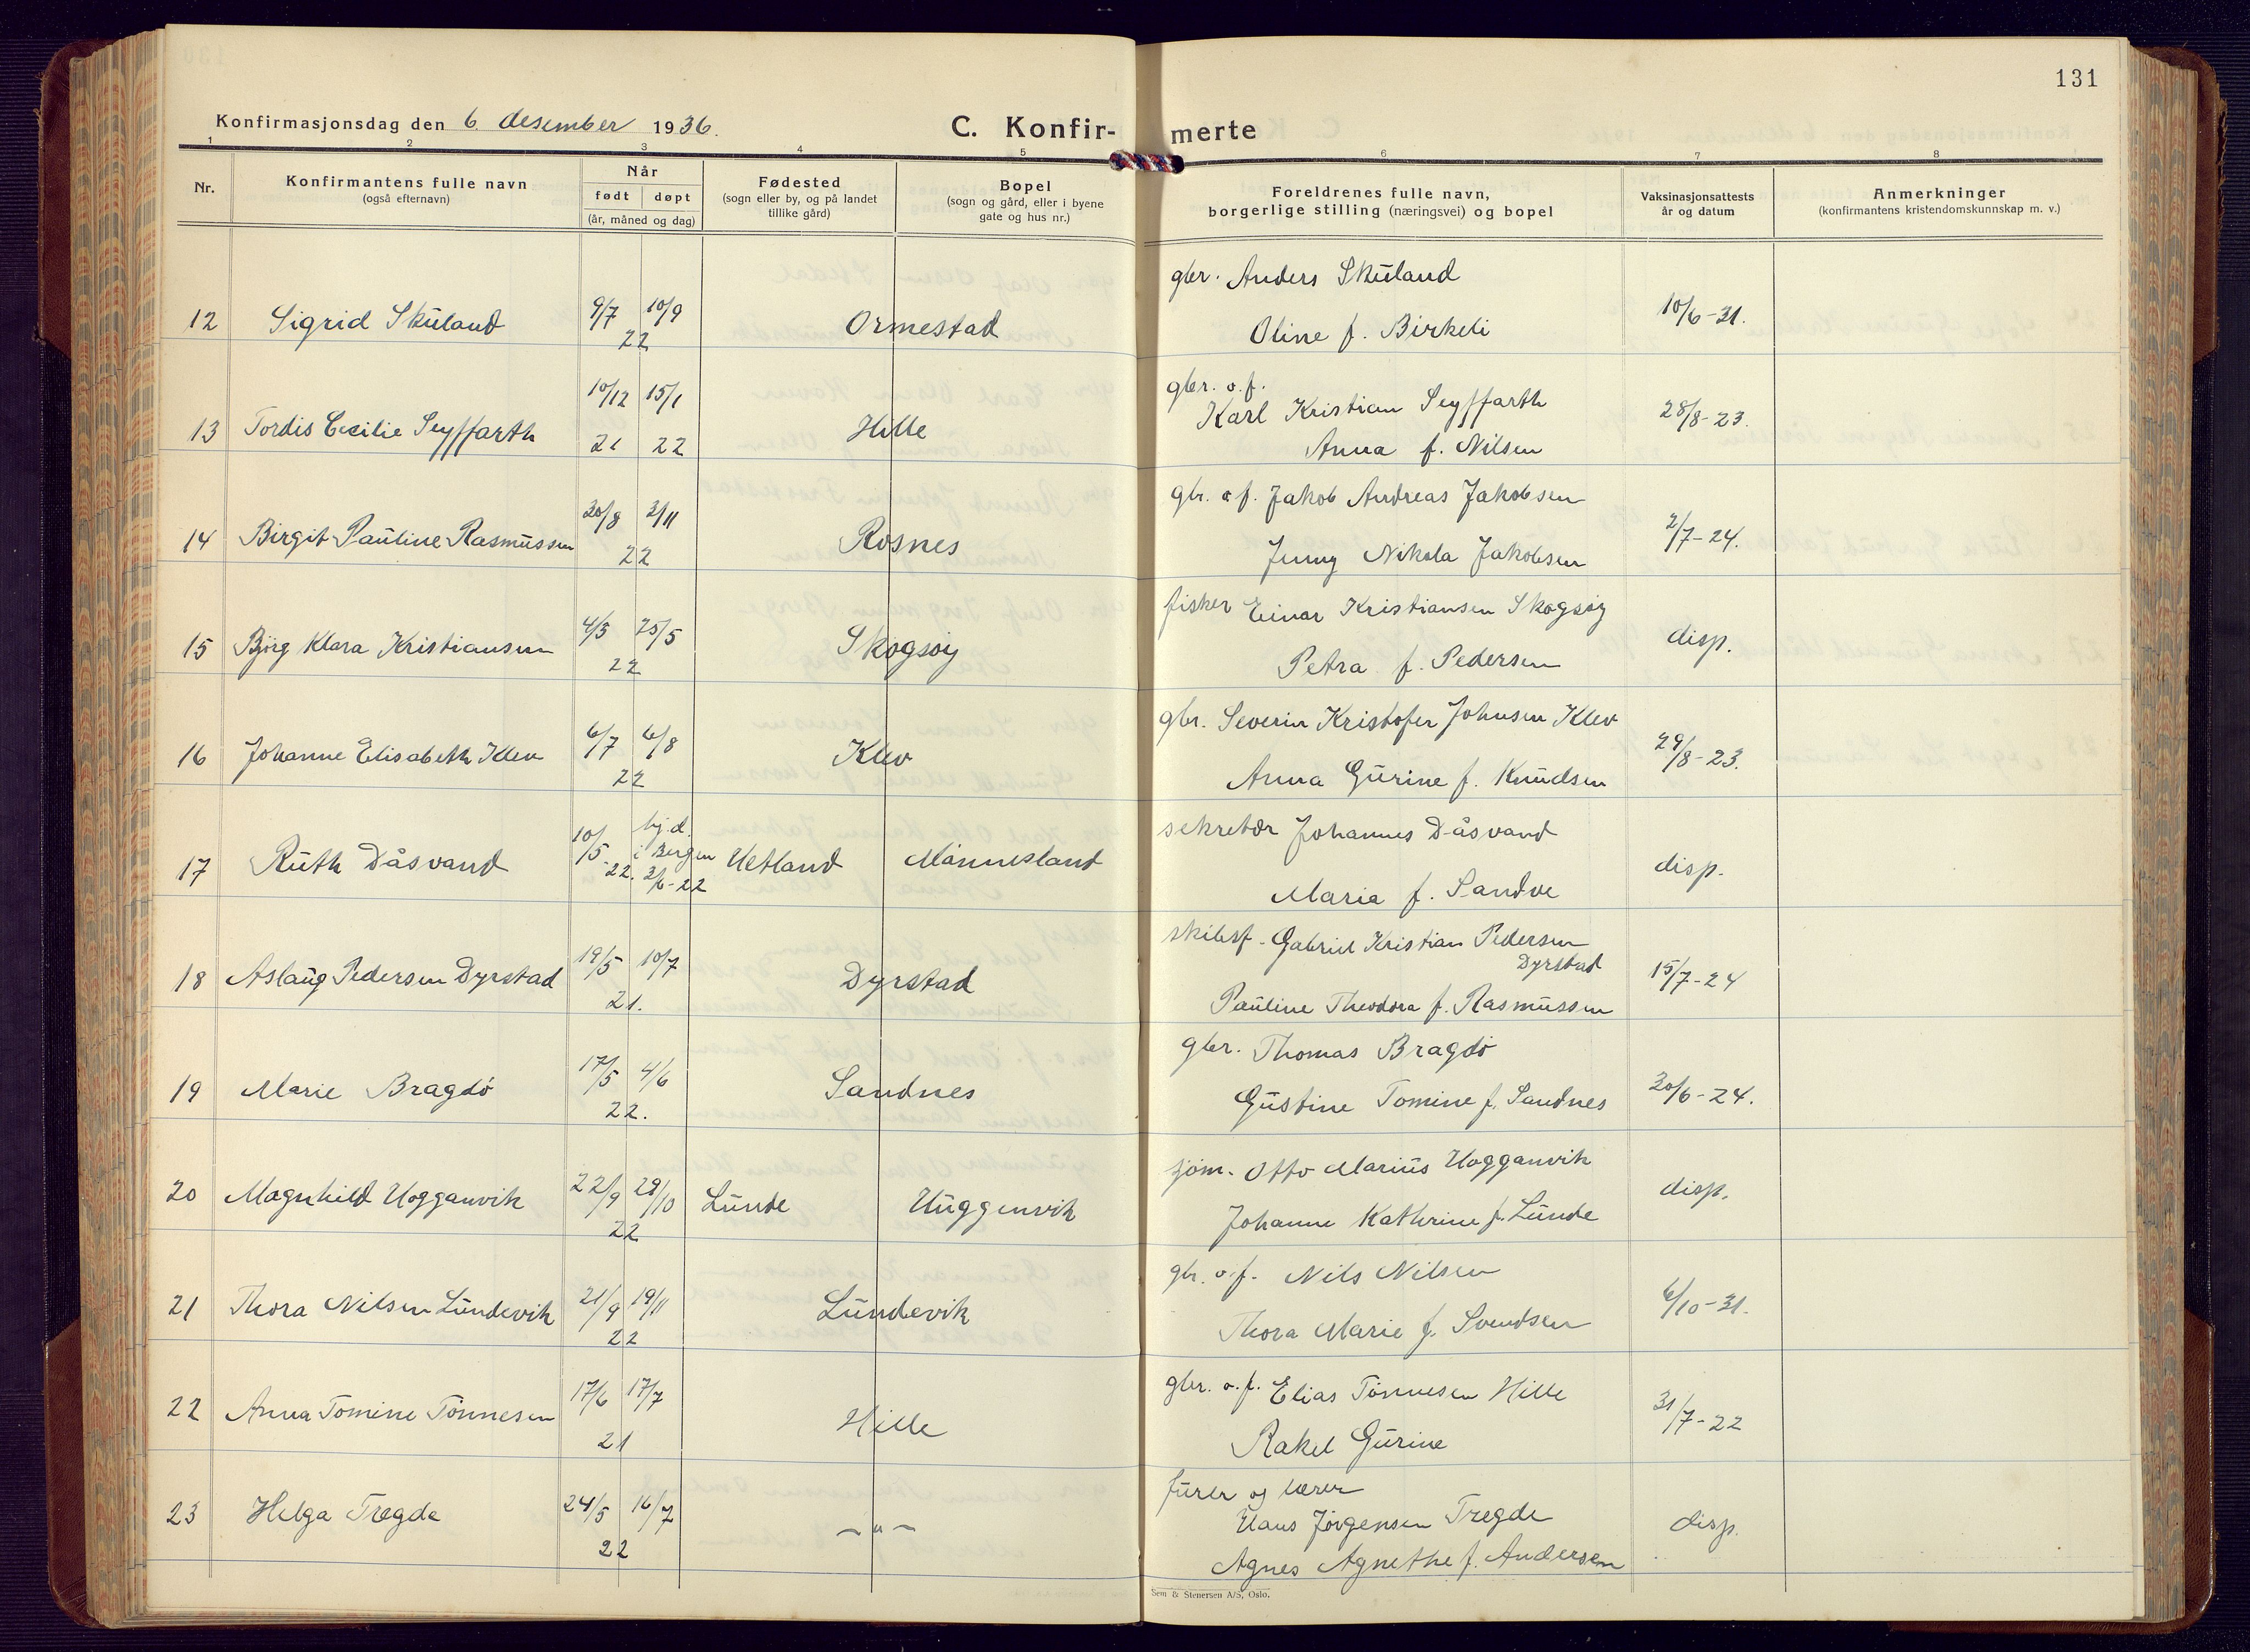 131
Konfirmasjonsdag den 6. desember 1936.
C. Konfir-merte
1 2 3 4 5 6 7 8
Nr.
Konfirmantens fulle navn
(også efternavn)
Når
født døpt
(år, måned og dag)
Fødested
(sogn eller by, og på landet
tillike gård)
Bopel
(sogn og gård, eller i byene
gate og hus nr.)
Foreldrenes fulle navn,
borgerlige stilling (næringsvei) og bopel
Vaksinasjonsattests
år og datum
Anmerkninger
(konfirmantens kristendomskunnskap m. v.)
gbr. Anders Skuland
12 Sigrid Skuland 9/7 10/9 Ormestad 10/6-31.
22 Oline f. Birkeli
gbr. o. f.
10/12 15/1 Karl Kristian Seyffarth 28/8-23.
13 Tordis Cecilie Seyffarth Hille
21 22 Anna f. Nilsen
gbr. o f. Jakob Andreas Jakobsen
14 Birgit Pauline Rasmussen 30/8 2/11 Rosnes 2/7-24.
22 Jenny Nikola Jakobsen
fisker Einar Kristiansen Skogsøy
15 Bjørg Klara Kristiansen 4/3 25/5 Skogsøy disp.
22 Petra f. Pedersen
gbr. Severin Kristofer Johnsen Klev
16 Johanne Elisabeth Klev 6/7 6/8 Klev 29/8-23.
22 Anna Gurine f. Knudsen
hj.d. sekretær Johannes Dåsvand
17 Ruth Dåsvand 10/5-22. i Bergen Uetland Mannesland disp.
3/6-22 Maria f. Sandve
skibsf. Gabriel Kristian Pedersen
Dyrstad
18 Aslaug Pedersen Dyrstad 19/5 10/7 Dyrstad 15/7-24
21. Pauline Theodora f. Rasmussen
gbr. Thomas Bragdø
19 Marie Bragdø 17/5 4/6 Sandnes 30/6-24.
22. Gustine Tomine f. Sandnes
sjøm. Otto Marius Uogganvik
20 Magnhild Uogganvik 22/9 29/10 Lunde Uuggenvik disp.
22 Johanne Kathrine f. Lunde
gbr. o. f. Nils Nilsen
21 Thora Nilsen Lundevik 21/9 19/11 Lundevik 6/10-31.
22 Thora Marie f. Svendsen
gbr. o. f. Elias Tønnesen Hille
22 Anna Tomine Tønnesen 17/6 17/7 Hille 31/7-22
21 Rakel Gurine
furer og lærer
23 Helga Tregde 24/5 16/7 — " — Hans Jørgensen Tregde disp.
22 Agnes Agnethe f. Andersen
Sem & Stenersen A/S, Oslo.